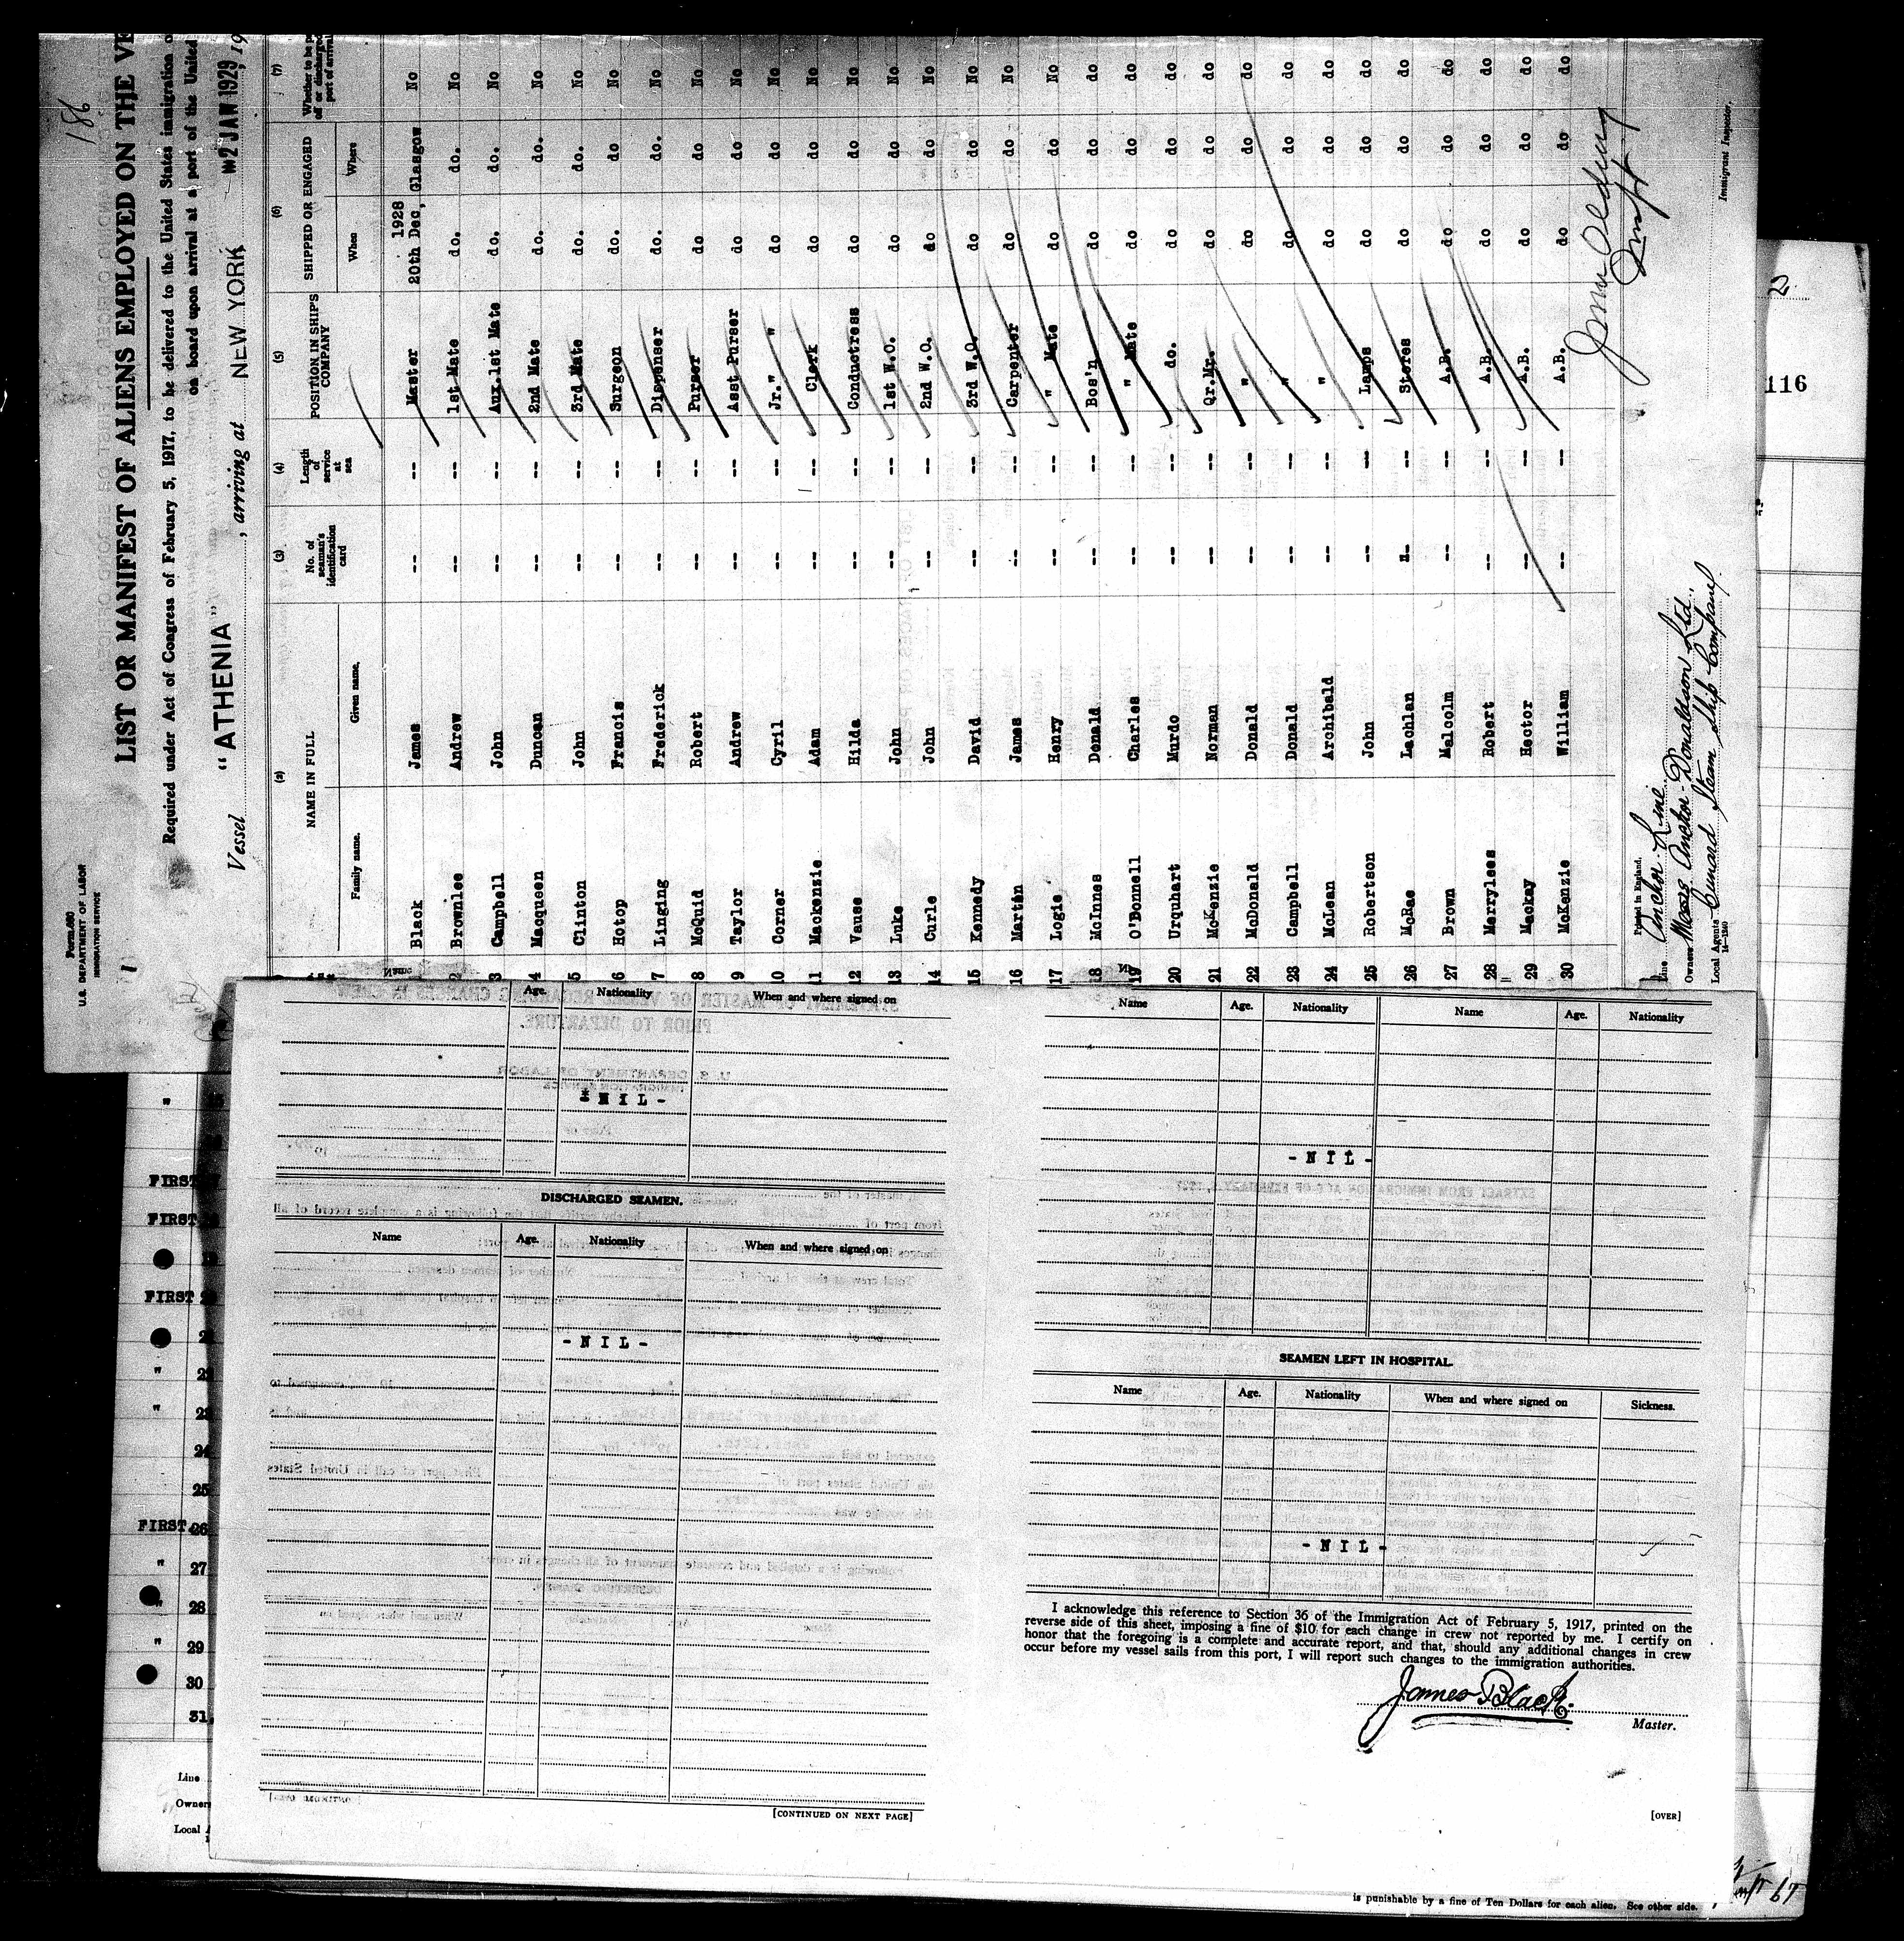 186
Form 680
U.S. DEPARTMENT OF LABOR
IMMIGRATION SERVICE
LIST OR MANIFEST OF ALIENS EMPLOYED ON THE VE
Required under Act of Congress of February 5, 1917, to be delivered to the United States immigration o
on board upon arrival at a port of the United
Vessel "ATHENIA" , arriving at NEW YORK 2 JAN 1929 , 19
(2) (3) (4) (5) (6) (7)
NAME IN FULL No. of seaman's identification card Length of service at sea POSITION IN SHIP'S COMPANY SHIPPED OR ENGAGED Whether to be p off or discharged port of arrival
Family name. Given name. When Where
1928
Black James -- -- Master 20th Dec, Glasgow No
2 Brownlee Andrew -- -- 1st Mate do. do. No
3 Campbell John -- -- Aux.1st Mate do. do. No
4 Macqueen Duncan -- -- 2nd Mate do. do. No
5 Clinton John -- -- 3rd Mate do. do. No
6 Hotop Francis -- -- Surgeon do. do No
7 Linging Frederick -- -- Dispenser do. do. No
8 McQuid Robert -- -- Purser do do No
9 Taylor Andrew -- -- Asst Purser do do No
10 Corner Cyril -- -- Jr." " do do No
11 Mackenzie Adam -- -- Clerk do do No
12 Vause Hilda -- -- Conductress do do No
13 Luke John -- -- 1st W.O. do do No
14 Curle John -- -- 2nd W.O. do do No
15 Kennedy David -- -- 3rd W.O. do do No
16 Martin James -- -- Carpenter do do No
17 Logie Henry -- -- " Mate do do No
18 McInnes Donald -- -- Bos'n do do do
19 O'Donnell Charles -- -- " Mate do do do
20 Urquhart Murdo -- -- do. do do do
21 McKenzie Norman -- -- Qr.Mr. do do do
22 McDonald Donald -- -- " do do do
23 Campbell Donald -- -- " do do do
24 McLean Archibald -- -- " do do do
25 Robertson John -- -- Lamps do do do
26 McRae Lachlan -- -- Stores do do do
27 Brown Malcolm -- -- A.B. do do do
28 Merrylees Robert -- -- A.B. do do do
29 Mackay Hector -- -- A.B. do do do
30 McKenzie William -- -- A.B. do do do
Printed in England.
Line Anchor Line
Owners Messrs Anchor-Donaldson Ltd.,
Local Agents Cunard Steam Ship Company
14—1240
Immigrant Inspector.
2
116
Age. Nationality When and where signed on
*NIL-
DISCHARGED SEAMEN.
Name Age. Nationality When and where signed on
-NIL-
[CONTINUED ON NEXT PAGE]
Name Age. Nationality Name Age. Nationality
-NIL-
SEAMEN LEFT IN HOSPITAL.
Name Age. Nationality When and where signed on Sickness.
-NIL-
I acknowledge this reference to Section 36 of the Immigration Act of February 5, 1917, printed on the
reverse side of this sheet, imposing a fine of $10 for each change in crew not reported by me. I certify on
honor that the foregoing is a complete and accurate report, and that, should any additional changes in crew
occur before my vessel sails from this port, I will report such changes to the immigration authorities.
James Black
Master.
[OVER]
"
FIRST
FIRST
FIRST
"
" 23
24
25
FIRST 26
" 27
" 28
" 29
30
31
Line
Owners
Local
is punishable by a fine of Ten Dollars for each alien. See other side.